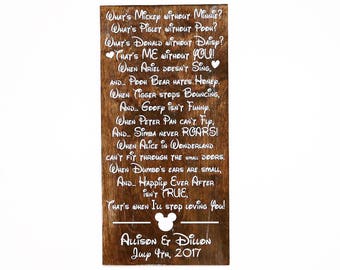 What's Mickey without Minnie?
What's Piglet without Pooh?
What's Donald without Daisy?
That's ME without YOU!
When Ariel doesn't Sing,
and... Pooh Bear hates Honey,
When Tigger stops Bouncing,
And... Goofy isn't Funny,
When Peter Pan can't Fly,
And... Simba never ROARS!
When Alice in Wonderland
can't fit through the small doors,
When Dumbo's ears are small,
And... Happily Ever After
isn't TRUE,
That's when I'll stop loving You!
Allison & Dillon
July 4th, 2017